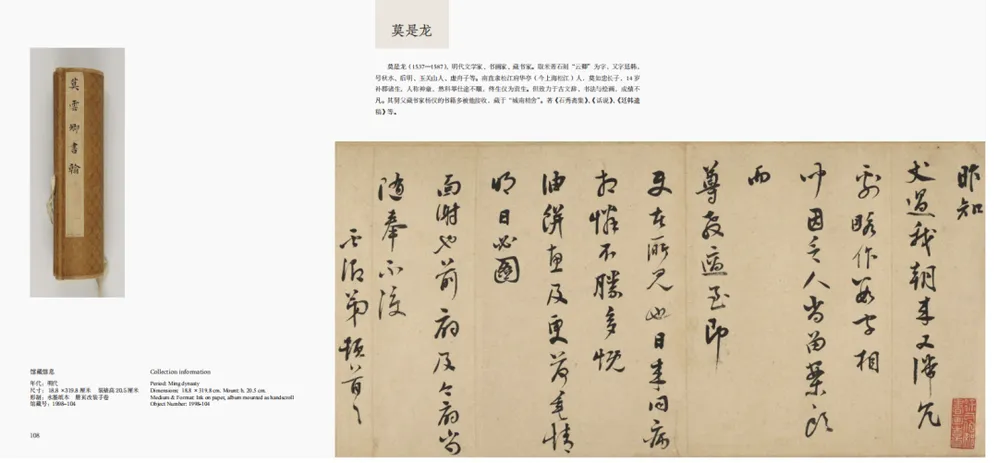 莫是龙
莫是龙(1537—1587),明代文学家、书画家、藏书家。取米芾石刻“云卿”为字,又字廷韩,
号秋水、后明、玉关山人、虚舟子等。南直隶松江府华亭(今上海松江)人,莫如忠长子,14 岁
补郡诸生,人称神童,然科举仕途不顺,终生仅为贡生。但致力于古文辞、书法与绘画,成绩不
凡。其舅父藏书家杨仪的书籍多被他接收,藏于“城南精舍”。著《石秀斋集》、《话说》、《廷韩遗
稿》等。
莫雲卿書翰
昨知
丈過我朝来又冗
劇略作數字相
叩因乏人尚留案頭
而
尊教適至即
更在所見也日来同病
相憐不勝多
油餅惠及更荷情
明日必圖
面謝也前及今尚
随奉不
弟頓首
馆藏信息
年代:明代
尺寸:18.8 ×319.8 厘米 装裱高 20.5 厘米
形制:水墨纸本 册页改装手卷
馆藏号:1998-104
Collection information
Period: Ming dynasty
Dimensions: 18.8 ×319.8 cm; Mount: h. 20.5 cm.
Medium & Format: Ink on paper, album mounted as handscroll
Object Number: 1998-104
108